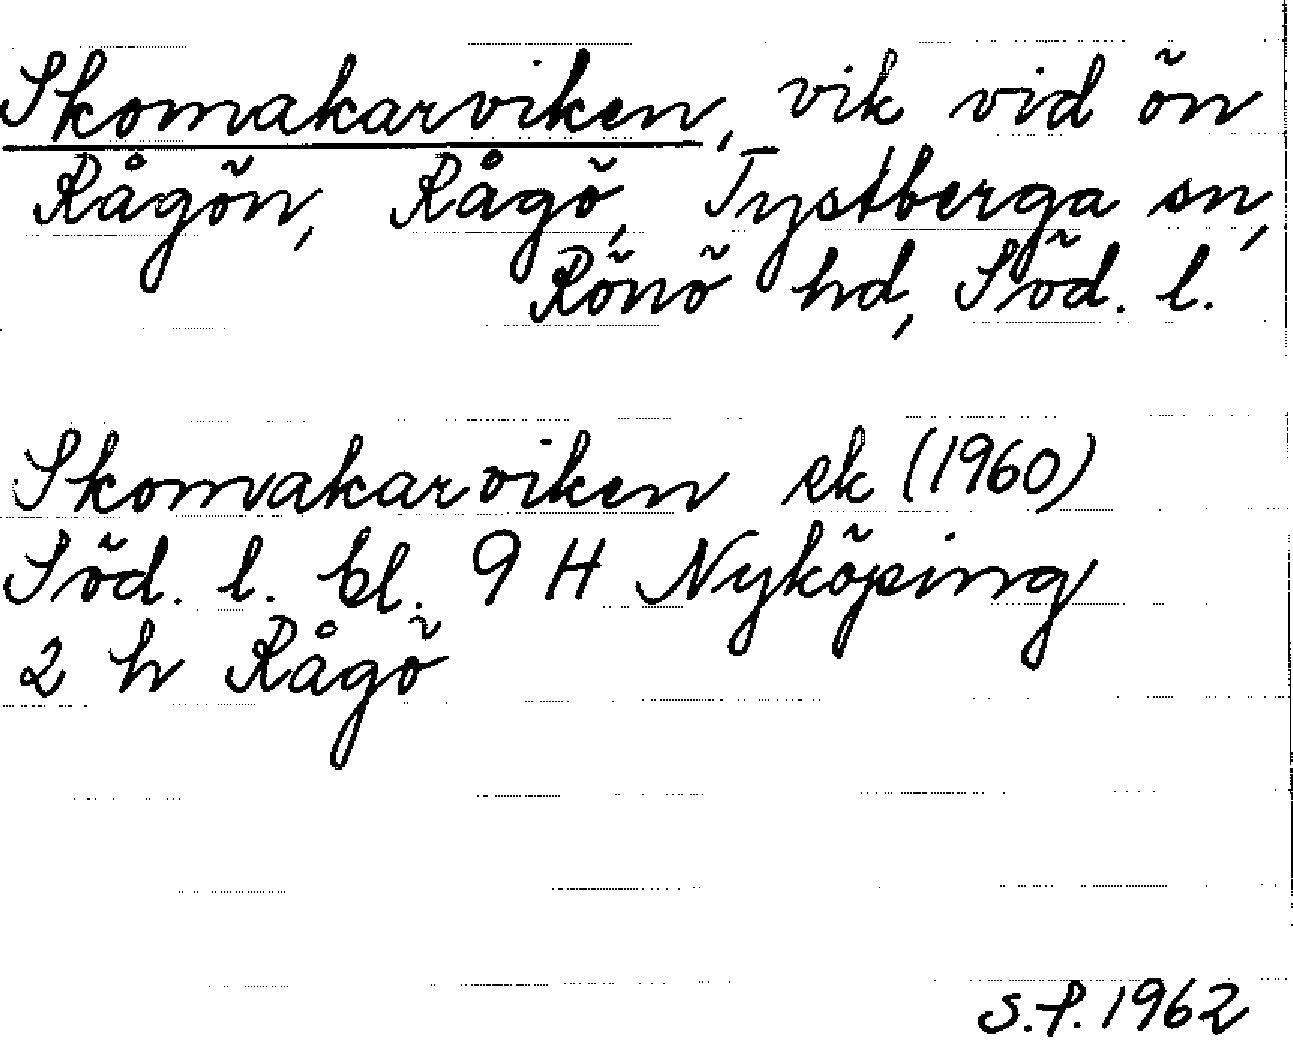 Skomakarviken, vik vid ön
Rågön, Rågö, Tystberga sn,
Rönö hd, Söd. l.
Skomakarviken ek (1960)
Söd. l. bl. 9 H Nyköping
2 h Rågö
S.P. 1962